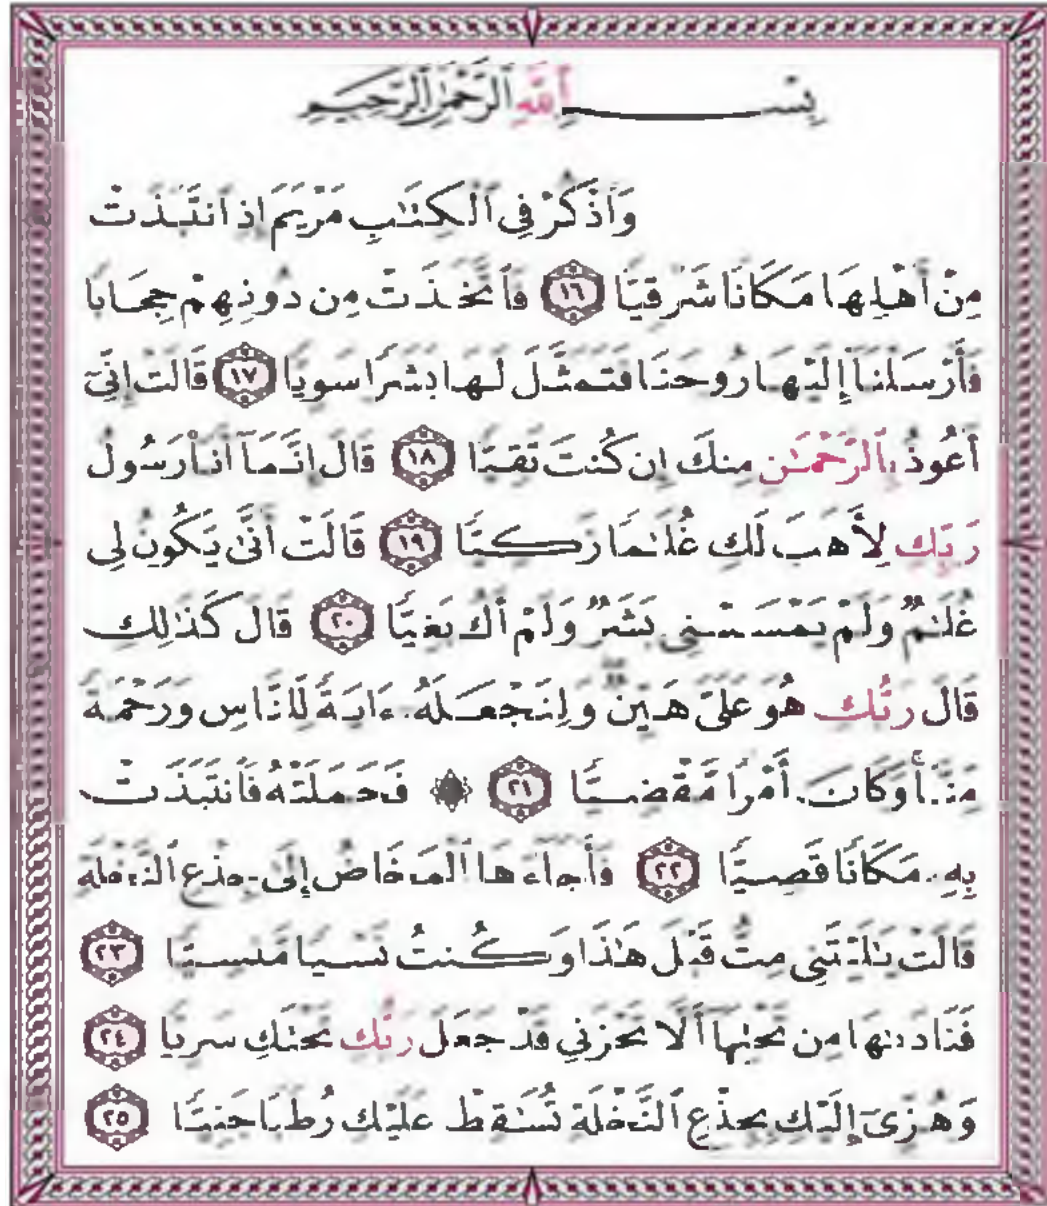 بِسْــــــمِ ٱللَّهِ ٱلرَّحْمَٰنِ ٱلرَّحِيمِ
وَٱذْكُرْ فِى ٱلْكِتَٰبِ مَرْيَمَ إِذِ ٱنتَبَذَتْ
مِنْ أَهْلِهَا مَكَانًا شَرْقِيًّا ١٦ فَٱتَّخَذَتْ مِن دُونِهِمْ حِجَابًا
فَأَرْسَلْنَآ إِلَيْهَا رُوحَنَا فَتَمَثَّلَ لَهَا بَشَرًا سَوِيًّا ١٧ قَالَتْ إِنِّىٓ
أَعُوذُ بِٱلرَّحْمَٰنِ مِنكَ إِن كُنتَ تَقِيًّا ١٨ قَالَ إِنَّمَآ أَنَا۠ رَسُولُ
رَبِّكِ لِأَهَبَ لَكِ غُلَٰمًا زَكِيًّا ١٩ قَالَتْ أَنَّىٰ يَكُونُ لِى
غُلَٰمٌ وَلَمْ يَمْسَسْنِى بَشَرٌ وَلَمْ أَكُ بَغِيًّا ٢٠ قَالَ كَذَٰلِكِ
قَالَ رَبُّكِ هُوَ عَلَىَّ هَيِّنٌ وَلِنَجْعَلَهُۥٓ ءَايَةً لِّلنَّاسِ وَرَحْمَةً
مِّنَّا وَكَانَ أَمْرًا مَّقْضِيًّا ٢١ ۞ فَحَمَلَتْهُ فَٱنتَبَذَتْ
بِهِۦ مَكَانًا قَصِيًّا ٢٢ فَأَجَآءَهَا ٱلْمَخَاضُ إِلَىٰ جِذْعِ ٱلنَّخْلَةِ
قَالَتْ يَٰلَيْتَنِى مِتُّ قَبْلَ هَٰذَا وَكُنتُ نَسْيًا مَّنسِيًّا ٢٣
فَنَادَىٰهَا مِن تَحْتِهَآ أَلَّا تَحْزَنِى قَدْ جَعَلَ رَبُّكِ تَحْتَكِ سَرِيًّا ٢٤
وَهُزِّىٓ إِلَيْكِ بِجِذْعِ ٱلنَّخْلَةِ تُسَٰقِطْ عَلَيْكِ رُطَبًا جَنِيًّا ٢٥